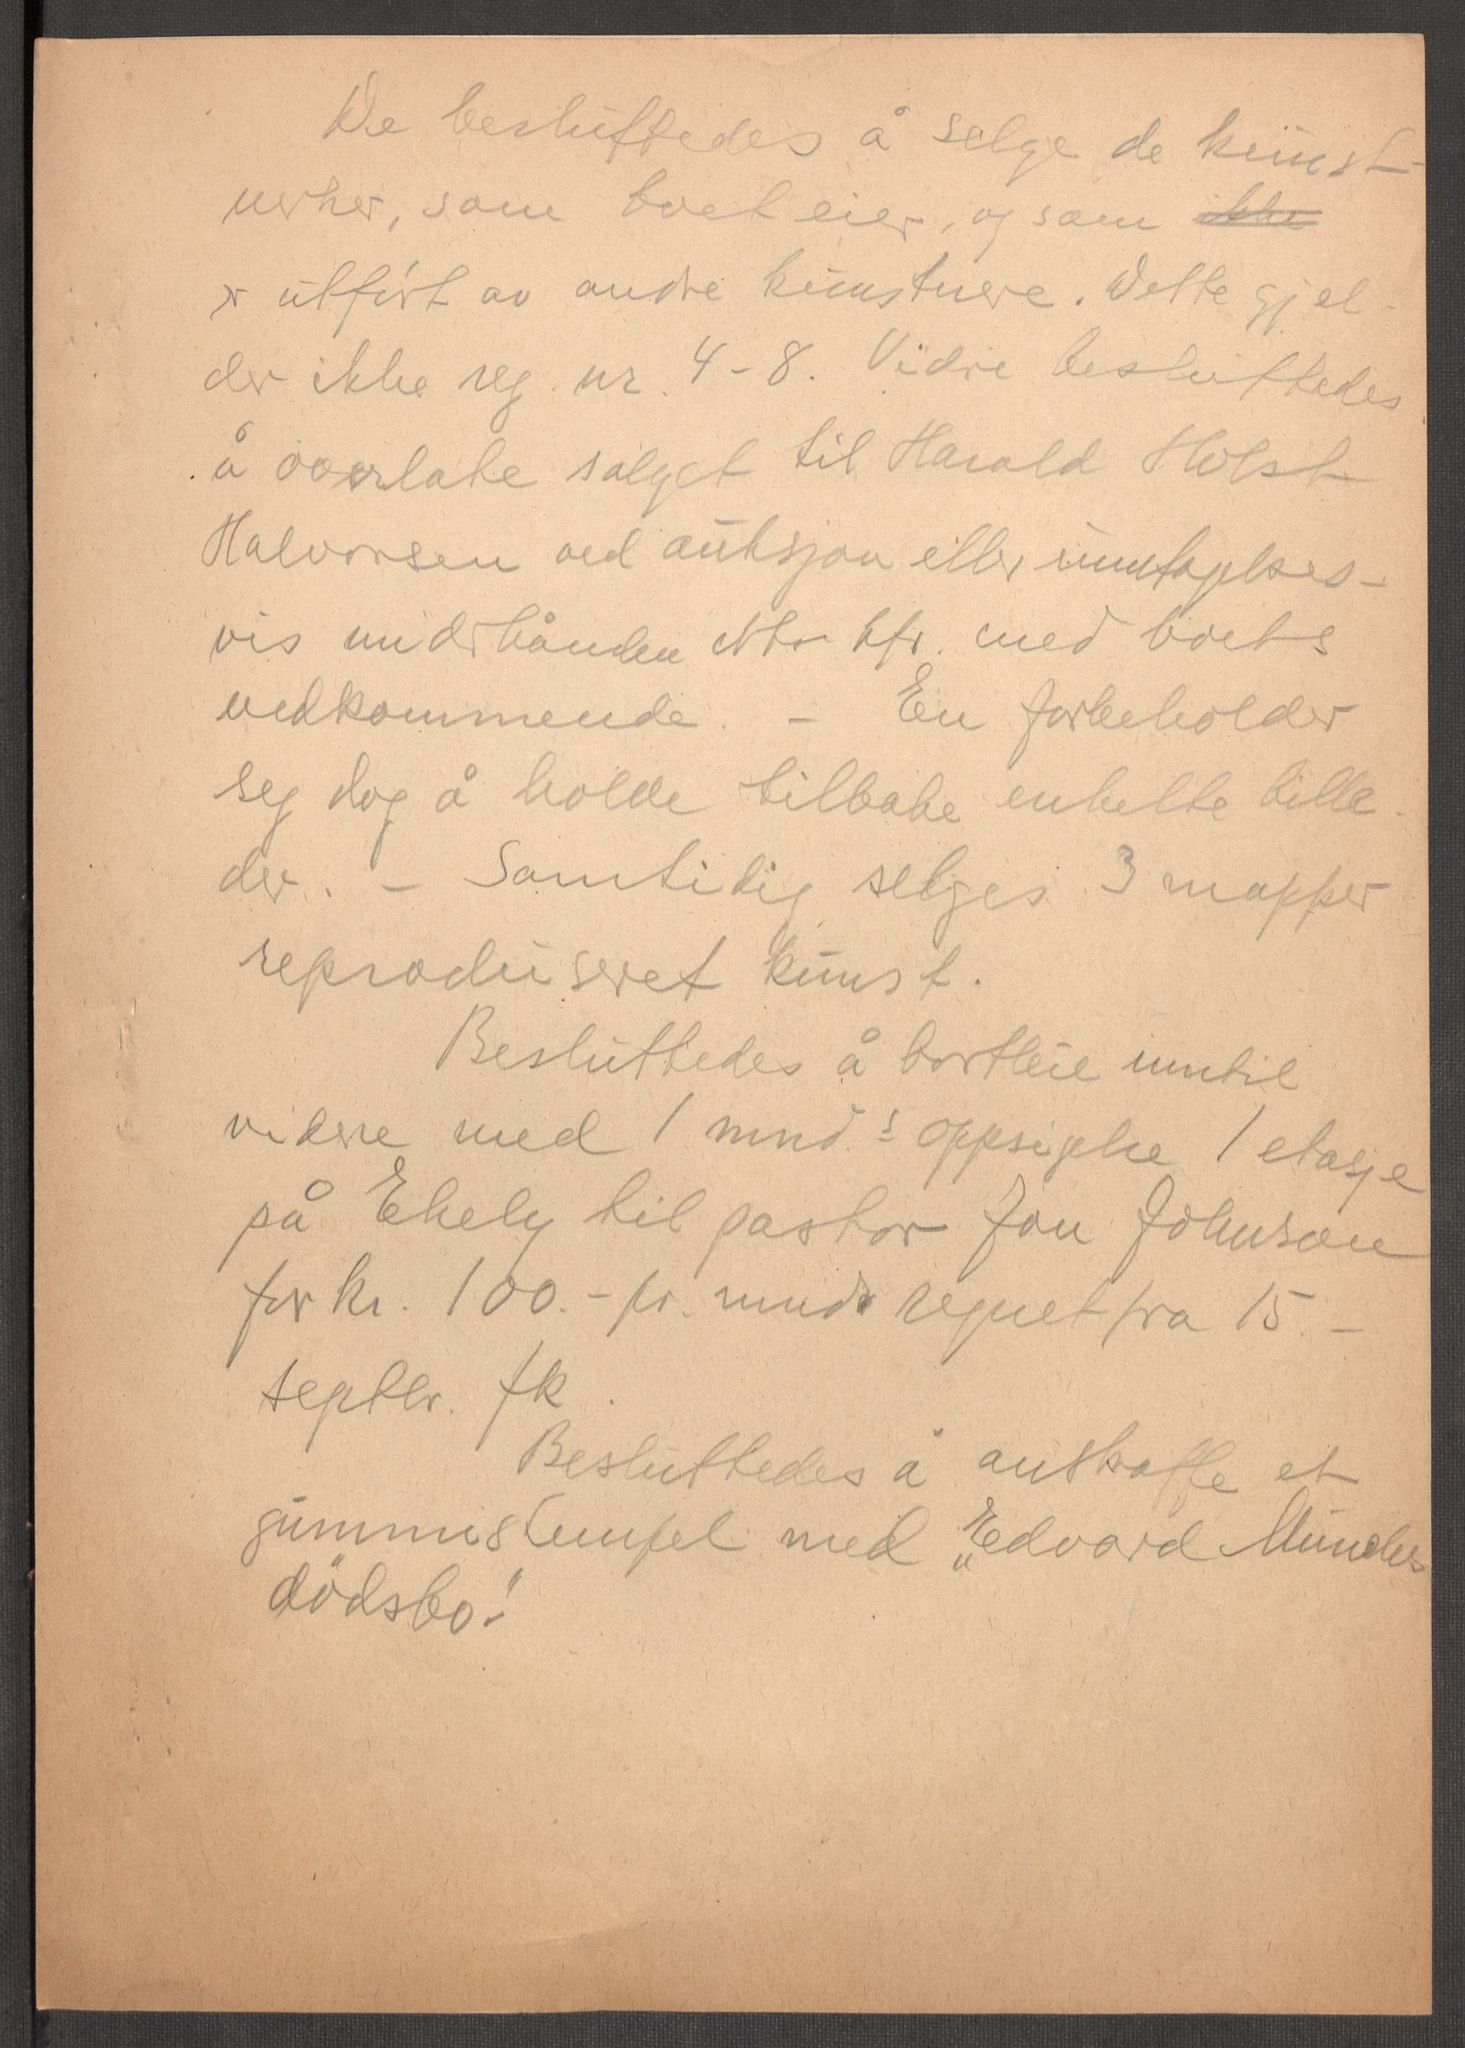 De besluttedes å selge de kunst-
verker, som boet eier, og som ikke
er utført av andre kunstnere. Dette gjel-
der ikke reg. nr. 4-8. Vidre besluttedes
å overlate salget til Harald Holst
Halvorsen ved auksjon eller unntagelses-
vis underhånden etter kfr. med boets
vedkommende. - En forbeholder
seg dog å holde tilbake enkelte bille-
der. - Samtidig selges 3 mapper
reproduseret kunst.
Besluttedes å bortleie inntil
videre med 1 mnds oppsigelse 1 etasje
på Ekely til pastor Jon Johnson
for kr. 100.- pr. mnd regnet fra 15.-
septbr. fk.
Besluttedes å anskaffe et
gummistempel med „Edvard Munchs
dödsbo."